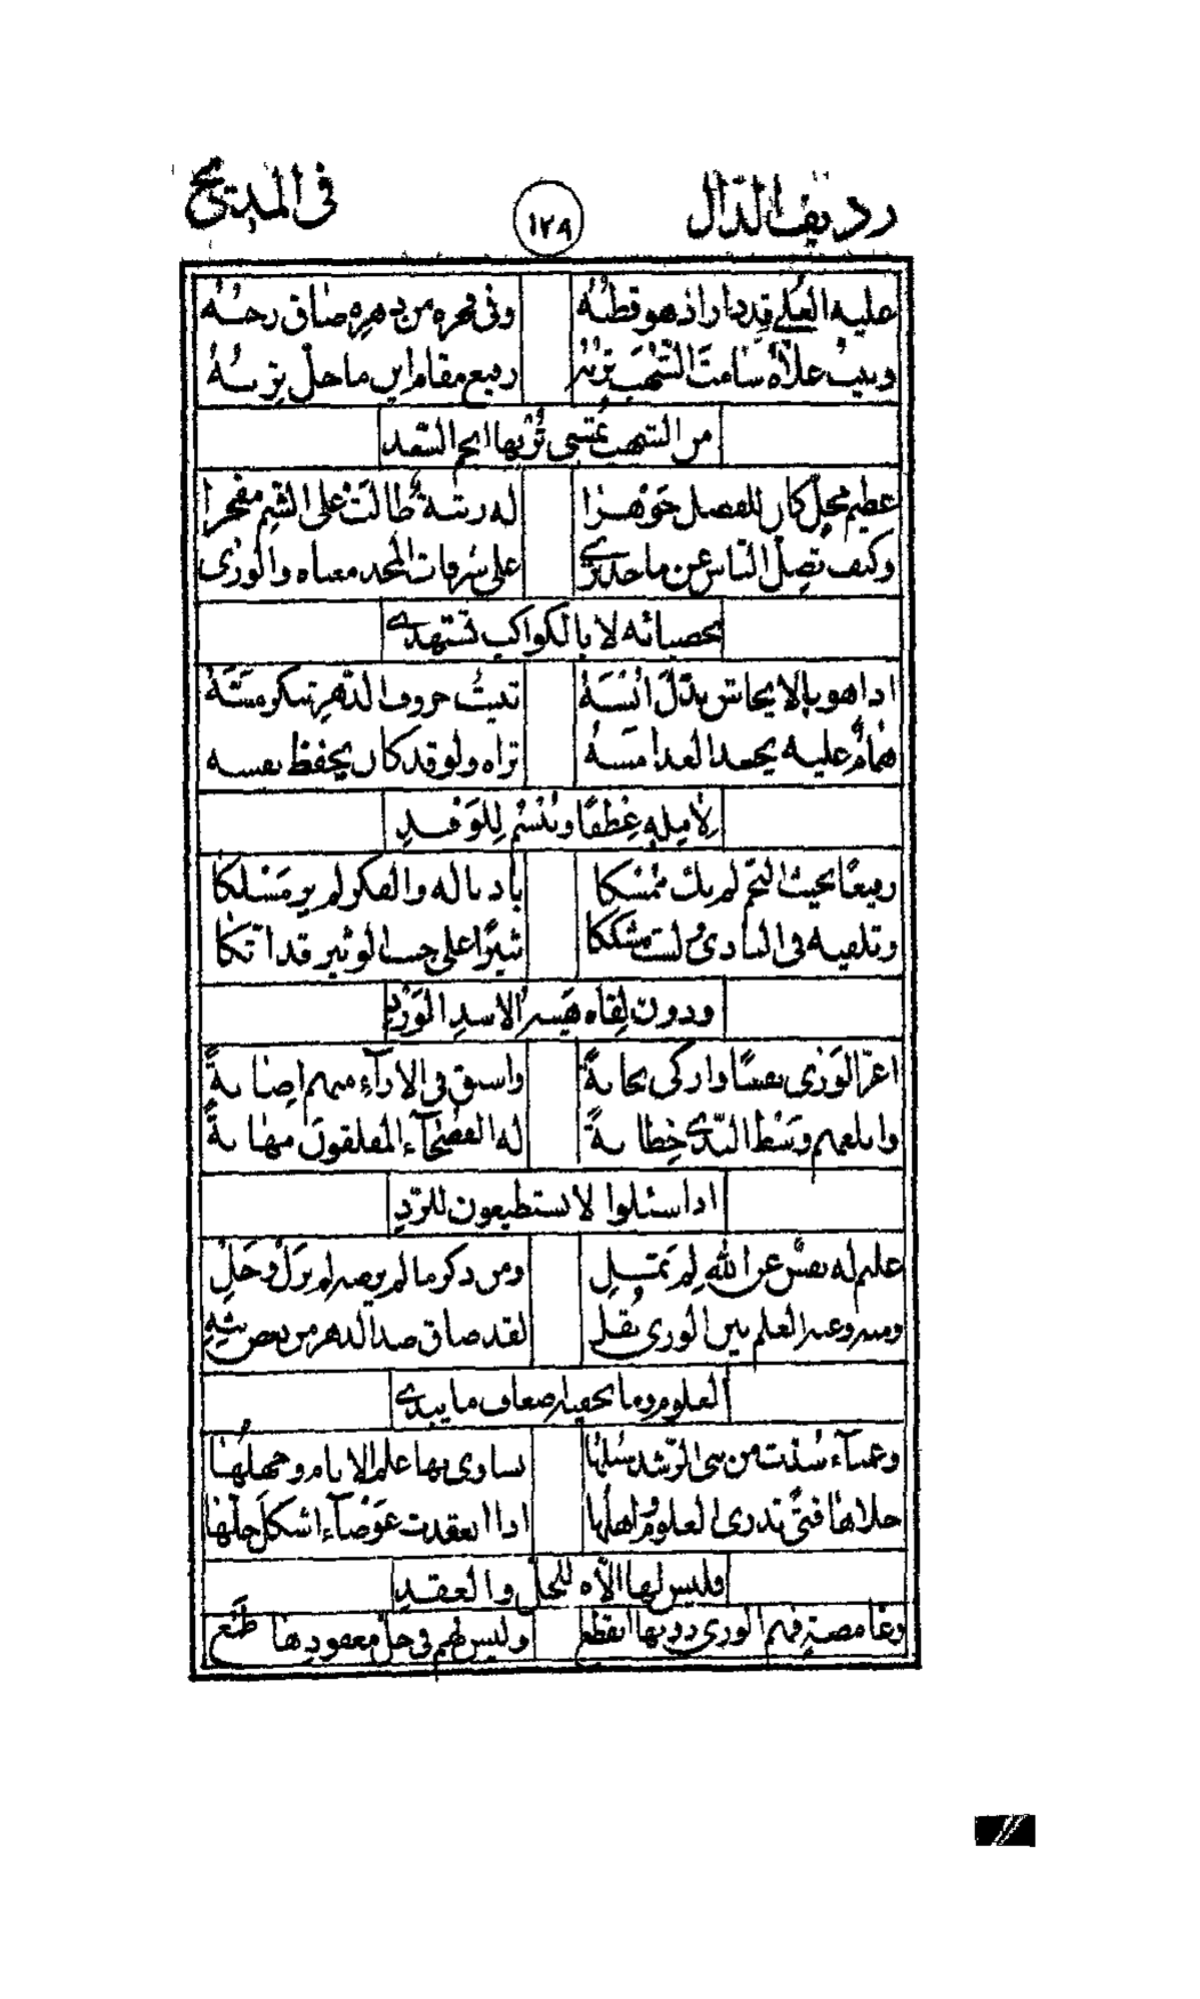 رديف الدال ١٢٩ في المديح
عليه العُلى قد دار اذ هو قطبُهُ وفي فخره من دهرِه ضاق رحبُهُ
وبيتُ علاهُ سامت الشُهبَ تربُهُ رفيع مقام اين ما حلّ تربُهُ
من الشهب تمسي تُربها انجم السّعد
عظيم محلٍ كان للفضل جَوْهَرا له رتبةٌ طالَت على الشهب مفخرا
وكيف تضِلّ الناس عن ما حدى على شرفات المجد معناه والورى
بحصبائه لا بالكواكب تستهدي
اذا هو بالايحاش بدّلَ انسَهُ تبيتُ حروف الدّهر تنكر مسّهُ
همامٌ عليه يحسد الغد امسَهُ تراه ولو قد كان يحفظ نفسه
لِآمِلِهِ عطفًا ويبْسُم لِلوَفْدِ
رفيعًا بحيث النجم لم يك مُمْسَكا بادباله والفكر لم يرَ مَسْلَكا
وتلفيه في النادى ولست مشككا ثبيرًا على جنب الوثير قد اتّكا
ودون لِقاه هَيبَةُ الاسدِ الوَرْدِ
اعزّ الوَرى نفسًا وازكى نجابةً واسبق في الآراءِ منهم اِصابةً
وابلغهم وَسْط النّديّ خِطابةً له الفُصَحآء المفلقونَ مهابةً
اذا سئلوا لا يستطيعون للرّدِ
عليم له نفسٌ عن اللهِ لم تَمَلِ ومن ذكر ما لم يرضه لم يزَلْ وَجَلِ
ومنه وعنه العلم بين الورى نُقِل لقد ضاق صدر الدهر من بعض بثّهِ
العلوم وما يخفيه ضعاف ما يبدي
وعمياء سُدّت من بني الرّشد سُبْلُها تساوى بها علم الانام وجهلُها
جلاها فتىً تدرى العلومُ واهلُها اذا انعقدت عَوْصآء اشكلَ حلّها
فليس لها الّاه للحلّ والعقدِ
وغامضةٍ فهم الورى دونها انقطع وليس لهم في حلّ معقودها طَمَع